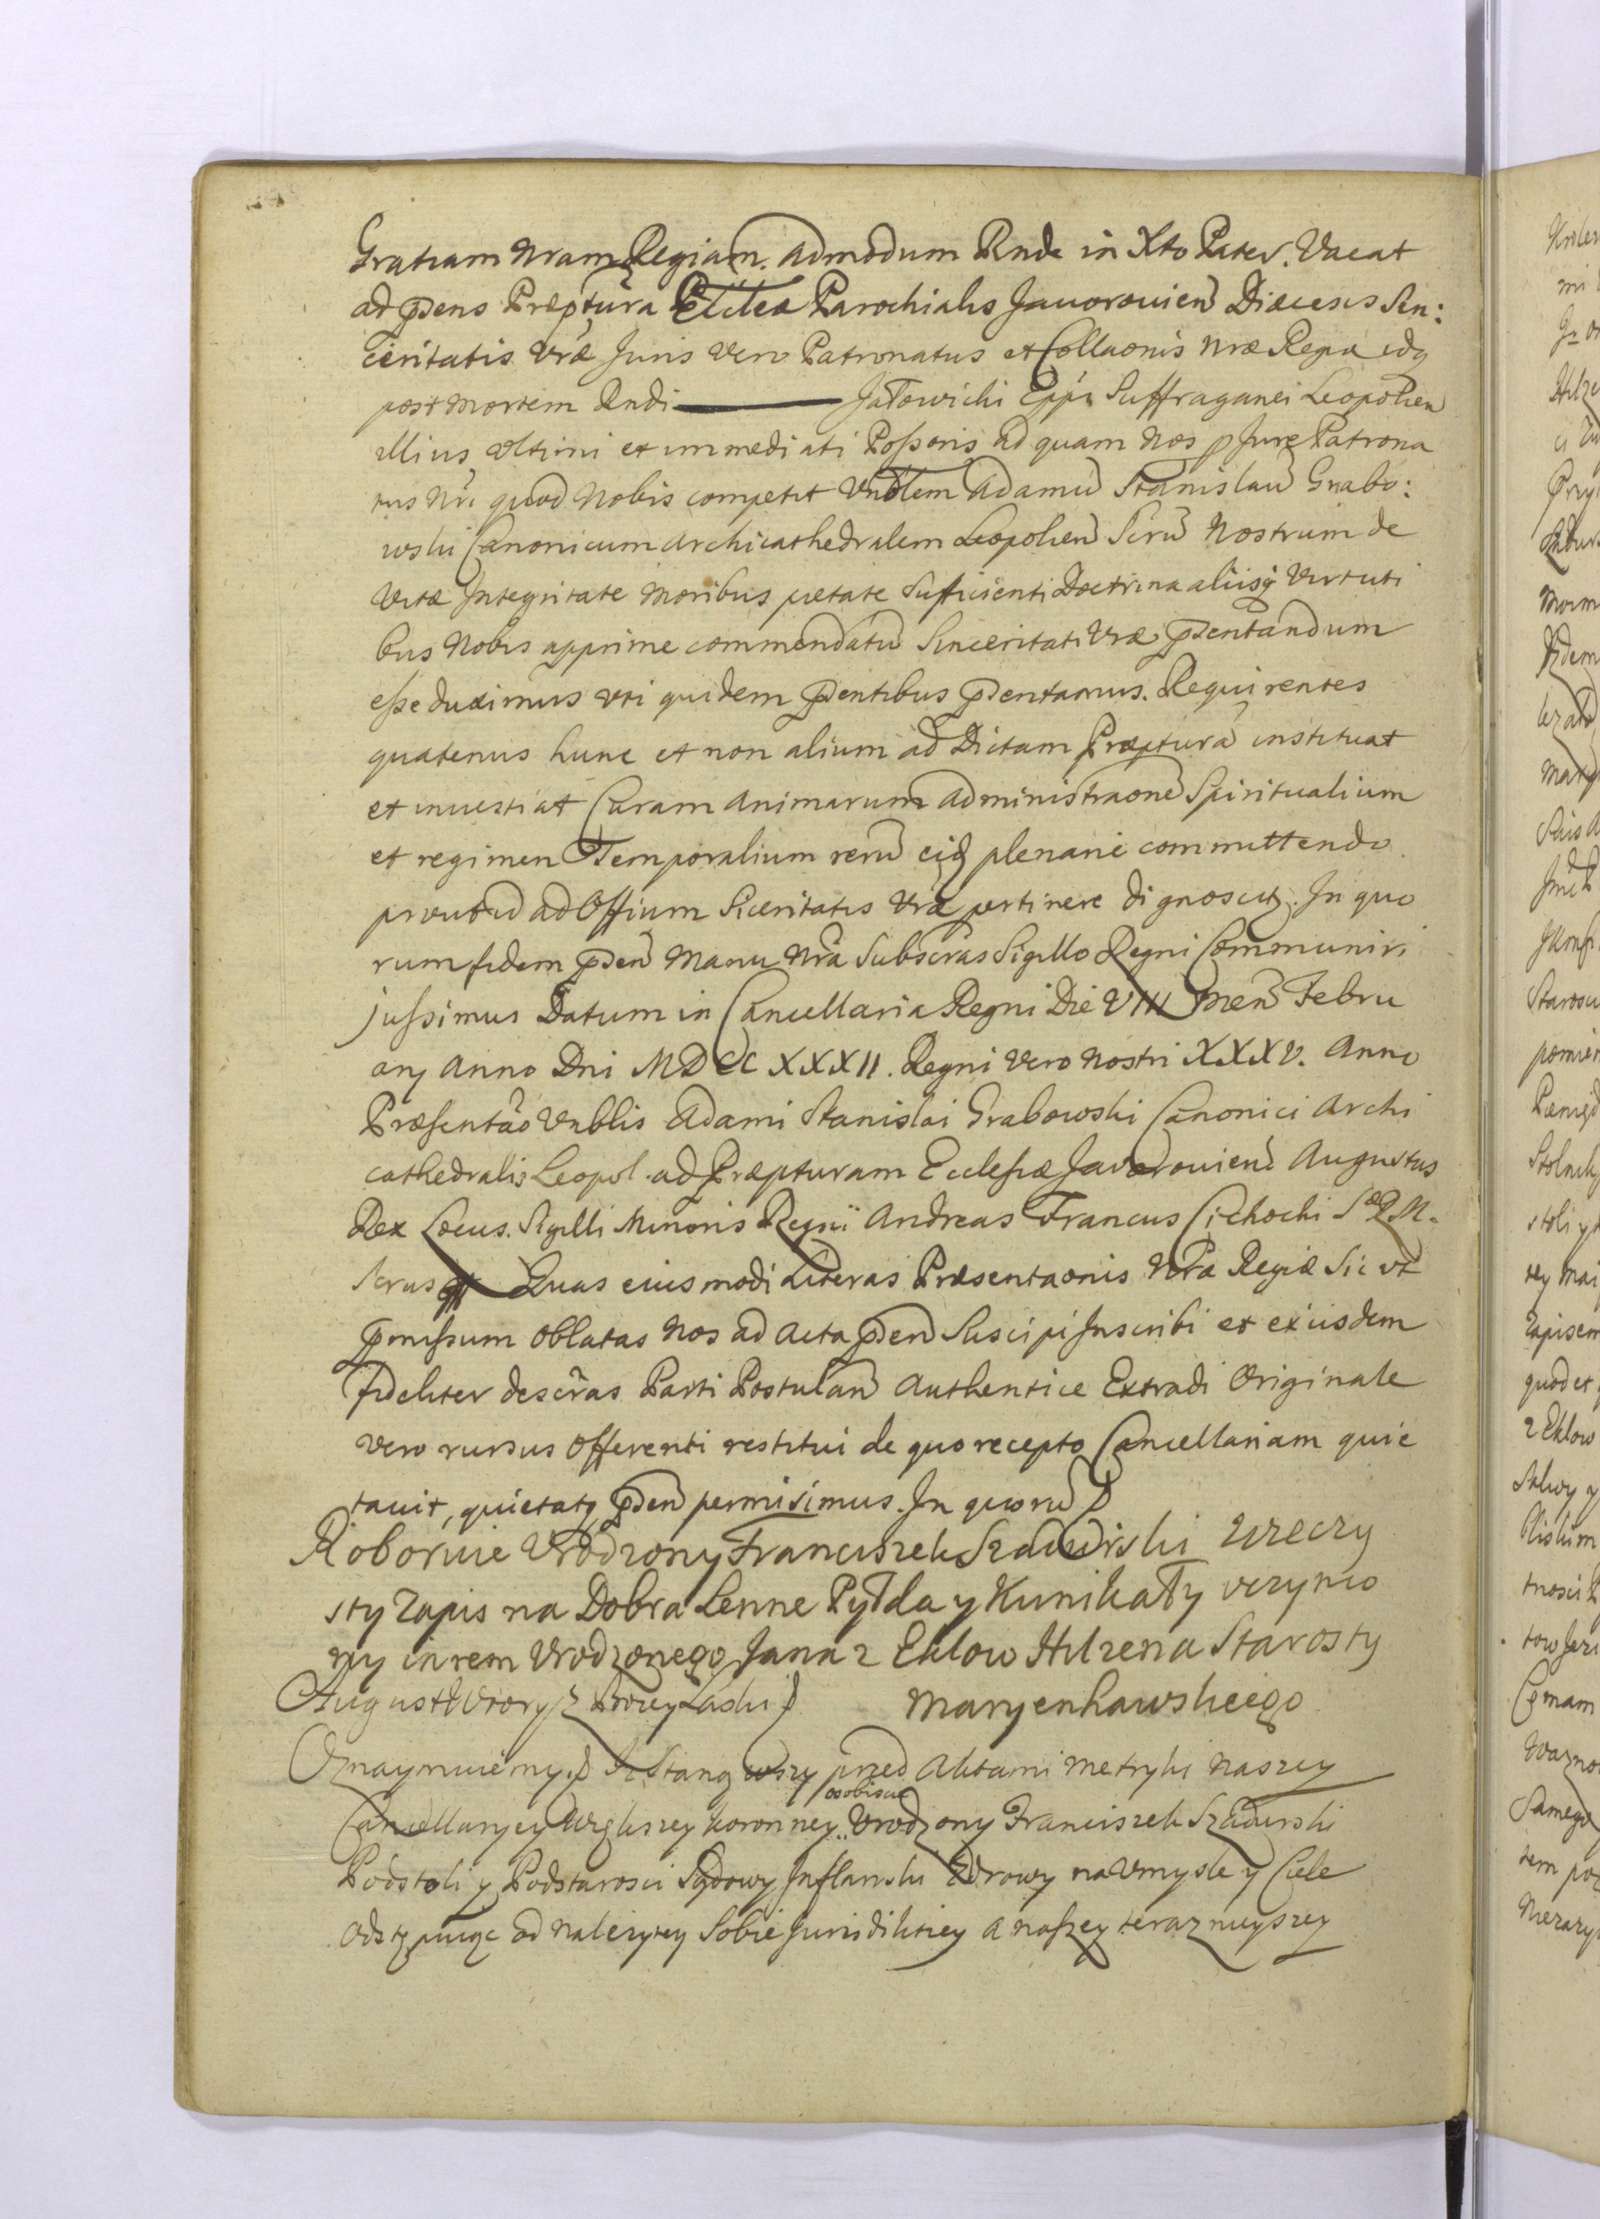 Gratiam Nram Regiam. Admodum Rnde in Xto Pater. Vacat
ad pñens Præptura Ecclæ Parochialis Javorovien Diæcesis Sin:
ceritatis Vræ Juris vero Patronatus et Collaonis Nræ Regiæ idq
post mortem Rndi ——— Jałowicki Eppi Suffraganei Leopolien
illius Vltimi et immediati Possoris ad quam Nos p Jure Patrona
tus Nri quod Nobis competit Vnblem Adamũ Stanislaũ Grabo:
wski Canonicum Archicathedralem Leopolien Scrũ Nostrum de
Vitæ Integritate Moribus pietate Sufficienti Doctrina aliisq Virtuti
bus Nobis apprime commendatũ Sinceritati Vræ pñentandum
esse duximus Vti quidem pñentibus pñentamus. Requirentes
quatenus hunc et non alium ad Dictam Præpturã instituat
et investiat Curam Animarum Administraonẽ Spiritualium
et regimen Temporalium rerũ eiq plenarie committendo
prout id ad Offium Siceritatis Vræ pertinere dignoscitr. In quo
rum fidem pñen Manu Nra Subscras Sigillo Regni Communiri
jussimus Datum in Cancellaria Regni Die VIII Men Febru
arij Anno Dni MDCCXXXII. Regni Vero Nostri XXXV. Anno
Præsentão Vnblis Adami Stanislai Grabowski Canonici Archi
cathedralis Leopol. ad Præpturam Ecclesiæ Javorovien Augustus
Rex Locus. Sigilli Minoris Regni Andreas Francus Cichocki S R M.
Scrus Quas eiusmodi Literas Præsentaonis Nra Regiæ Sic vt
pmissum Oblatas Nos ad Acta pñen Suscipi Inscribi et exiisdem
fideliter descras Parti Postulan Authentice Extradi Originale
Vero rursus Offerenti restitui de quo recepto Cancellariam quie
tavit, quietatq pñen permisimus. In quorũ
Roboruie Vrodzony Franciszek Szadurski Wieczy
sty Zapis na Dobra Lenne Pyłda y Kunikały vczynio
ny in rem Vrodzonego Jana z Eklow Hilzena Starosty
August Wtory z Bozey Łaski Maryenhawskiego
Oznaymuiemy Iz Stanąwszy przed Aktami Metryki Naszey
Cancellaryey Większey Koronney osobiscie Vrodzony Franciszek Szadurski
Podstoli y Podstarosci Sądowy Inflantski Zdrowy na Vmysle y Ciele
Odstąpuiąc od Nalezytey Sobie Jurisdiktiey a naszey teraznieyszey